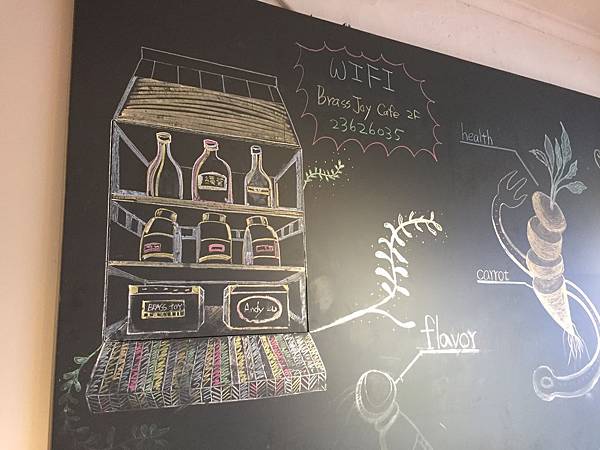 WIFI
Brass Joy Cafe 2F
23626035
health
carrot
flavor
BRASS JOY